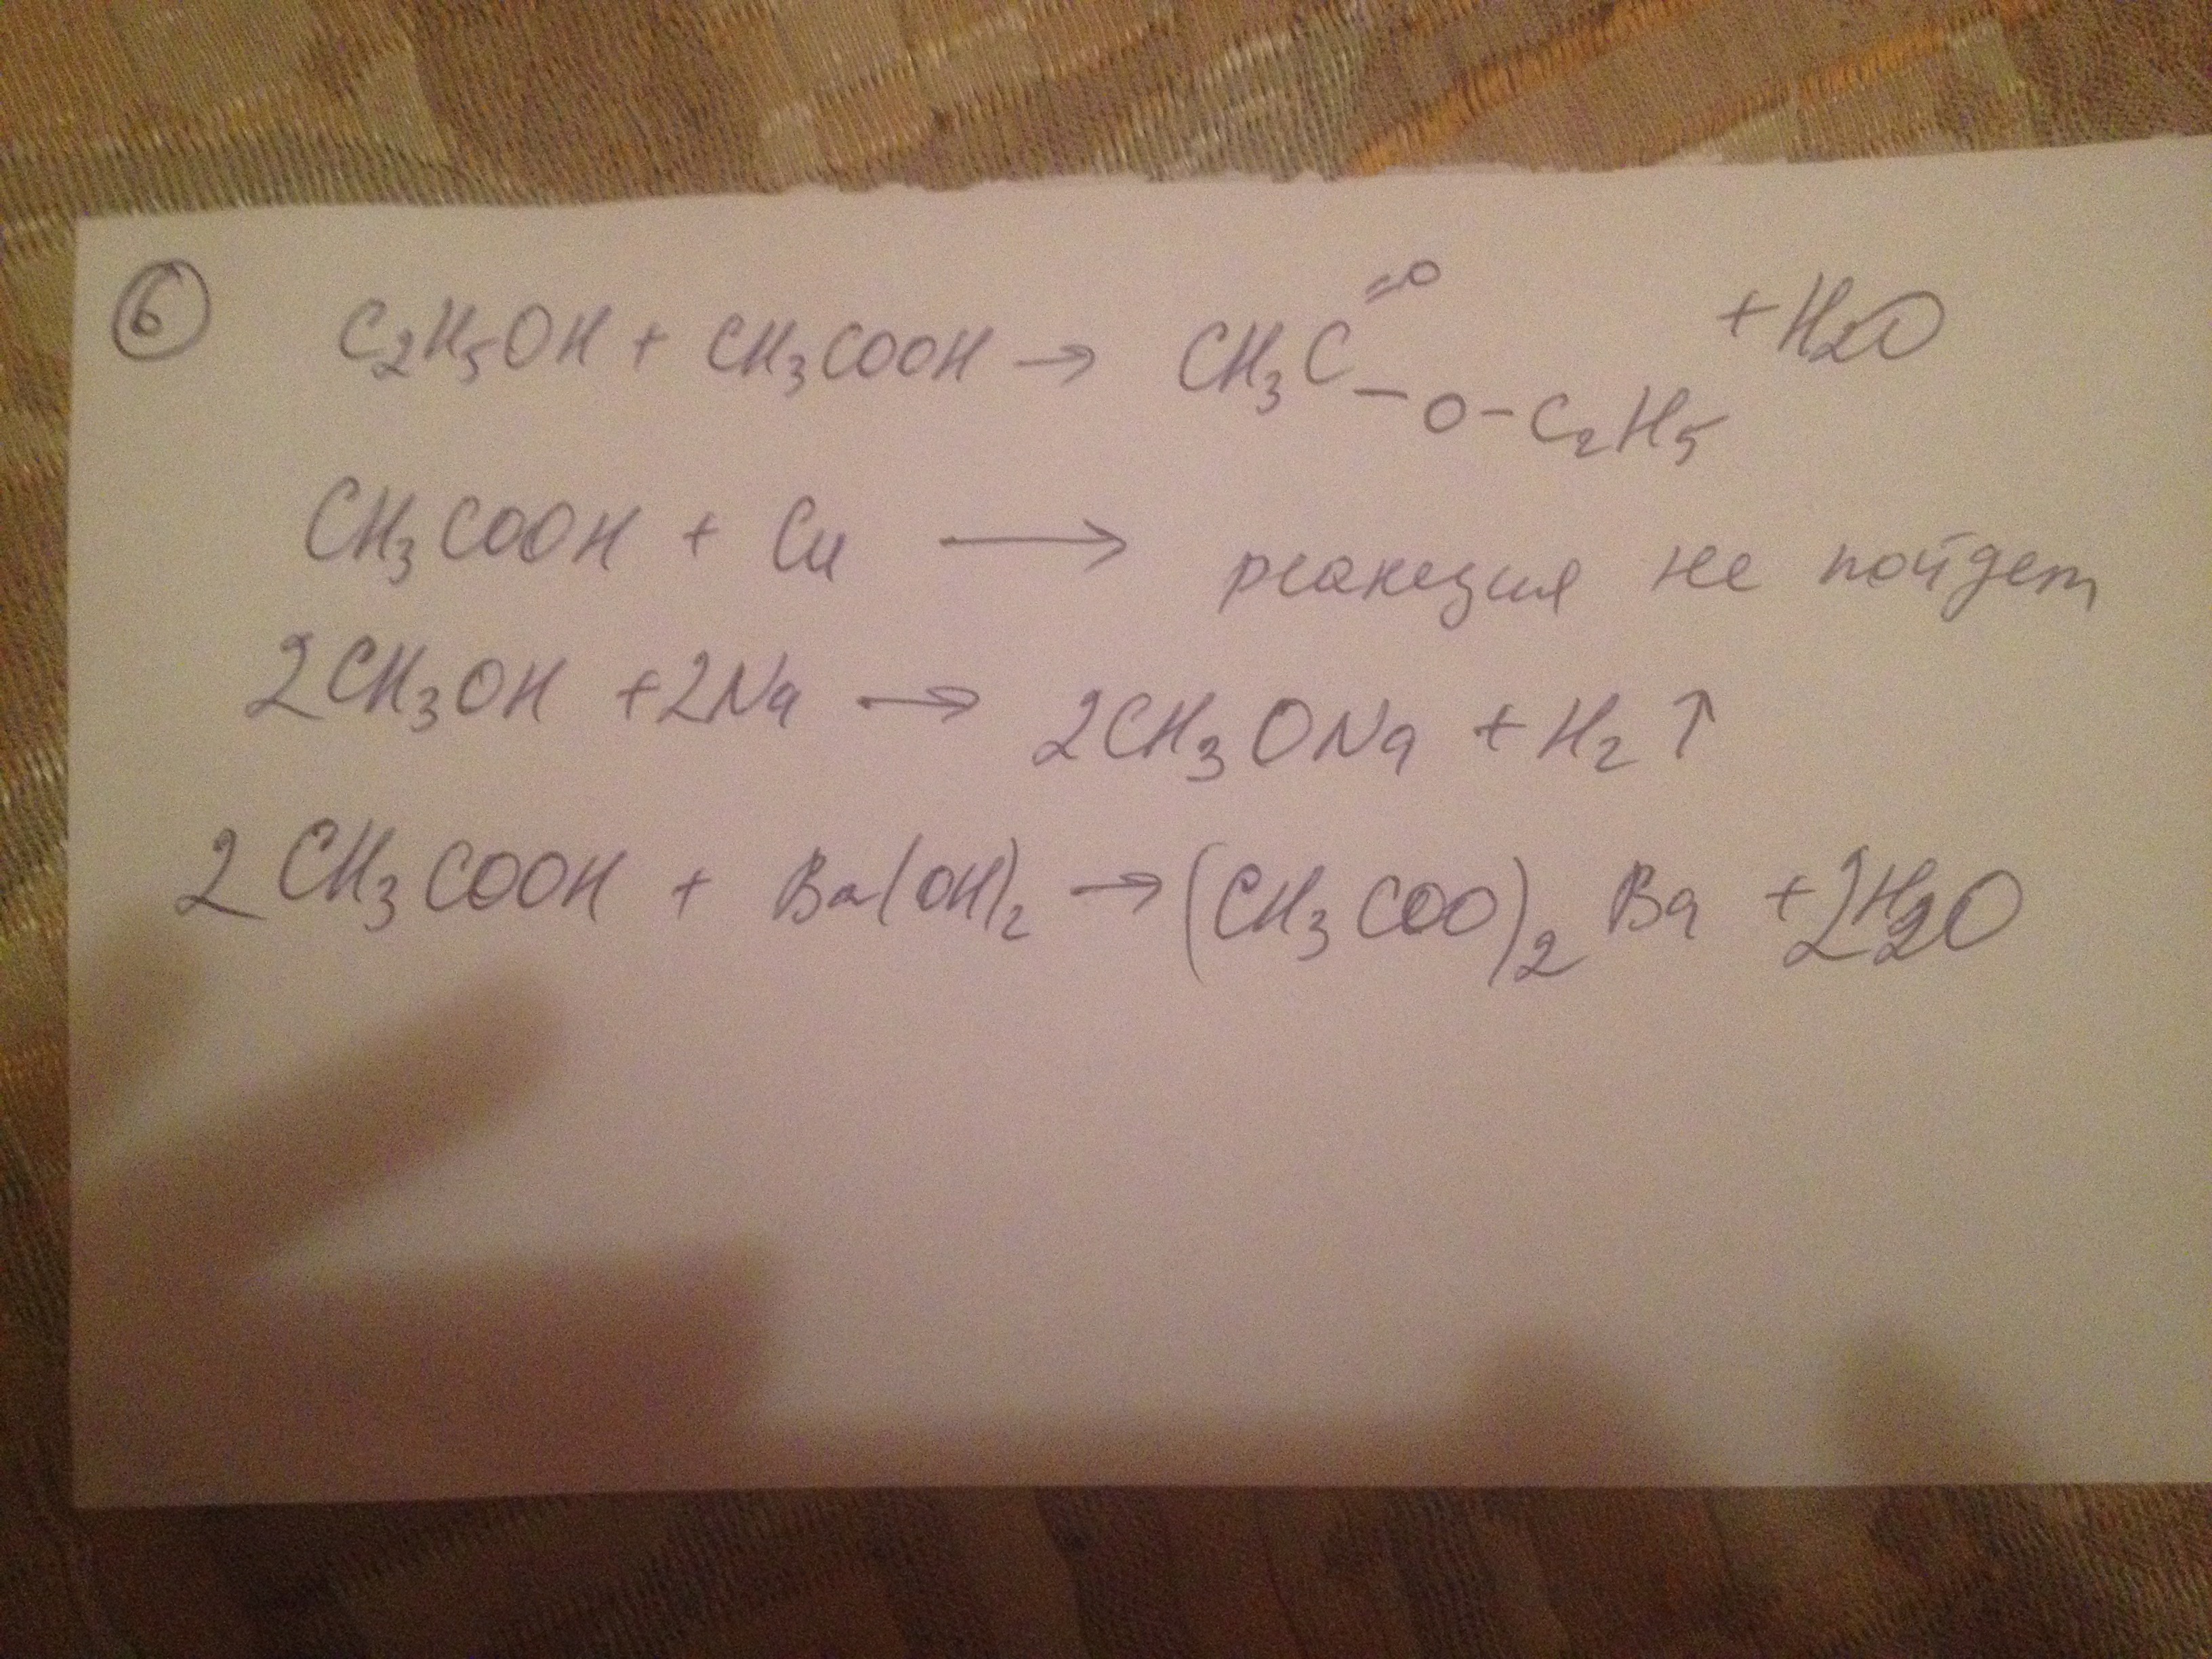 6 C₂H₅OH + CH₃COOH → CH₃C=O-O-C₂H₅ + H₂O
CH₃COOH + Cu → реакция не пойдет
2CH₃OH + 2Na → 2CH₃ONa + H₂↑
2CH₃COOH + Ba(OH)₂ → (CH₃COO)₂Ba + 2H₂O